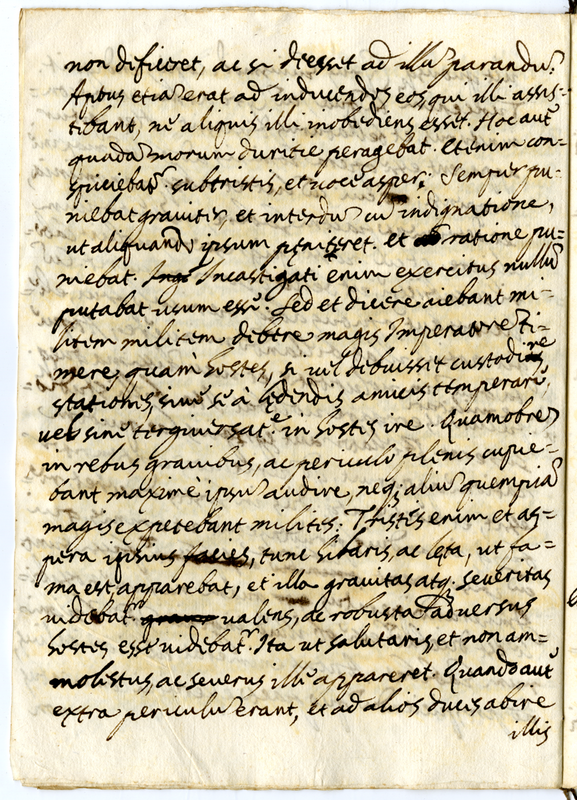 non deficeret, ac si deesset ad illū parandū.
Aptus etiā erat ad inducendos eos qui illi assis-
tibant, ne aliquis illi inobediens esset. Hoc autē
quadā morum duritie peragebat. Etenim con-
spiciebatr subtristis, et uoce asper; Semper pu-
niebat grauiter, et interdū cū indignatione,
ut aliquando ipsum pęniteret. et ratione pu-
niebat. Incastigati enim exercitus nullū
putabat usum esse. Sed et dicere aiebant mi-
litem militem debere magis Imperatorē ti-
mere, quam hostes, si uel debuisset custodire
stationes, siue se à lędendis amicis temperare,
uel sine terguiersatē in hostes ire. Quamobrē
in rebus grauibus, ac periculo plenis cupie-
bant maximè ipsū audire, neq; aliū quempiā
magis expetebant milites: Tristis enim et as-
pera ipsius facies, tunc hilaris, ac lęta, ut fa-
ma est, apparebat, et illa grauitas atq. seueritas
uidebatr ualens, ac robusta aduersus
hostes esse uidebatr. Ita ut salutaris, et non am-
molestus, ac seuerus ille appareret. Quando autē
extra periculū erant, et ad alios duces abire
illis